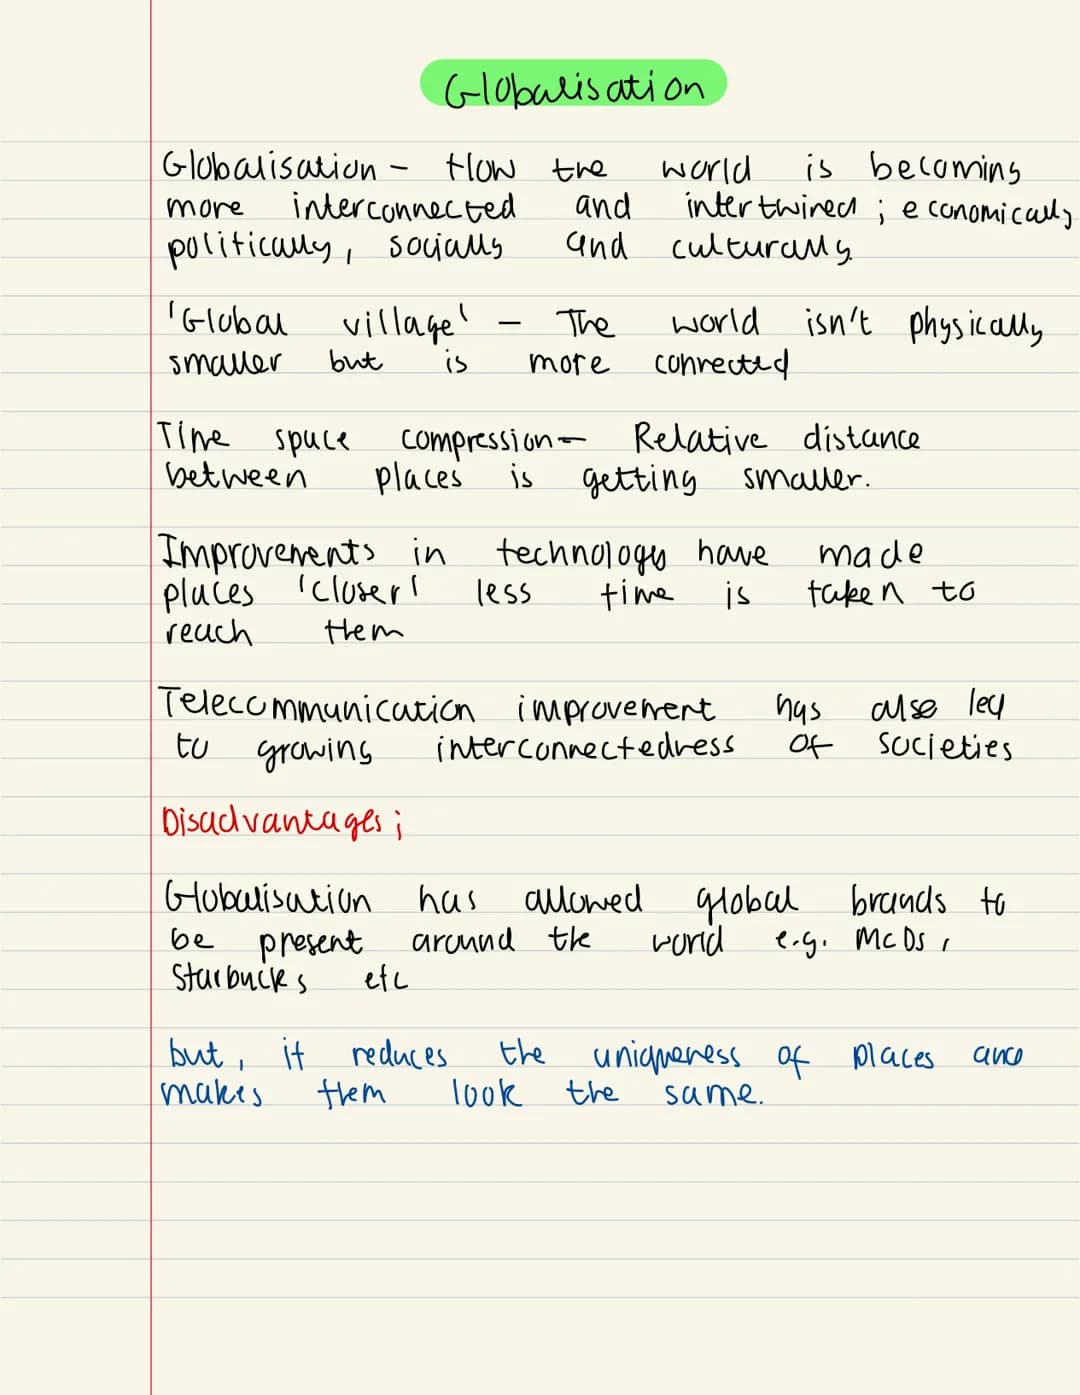 Globalisation
Globalisation - How the world is becoming
more interconnected and intertwined ; economically
politically, socially and culturally
'Global village' - The world isn't physically
smaller but is more connected
Time space compression - Relative distance
between places is getting smaller.
Improvements in technology have made
places 'closer' less time is taken to
reach them
Telecommunication improvement has also led
to growing interconnectedness of societies
Disadvantages ;
Globalisation has allowed global brands to
be present around the world e.g. McDs,
Starbucks etc
but, it reduces the uniqueness of places and
makes them look the same.